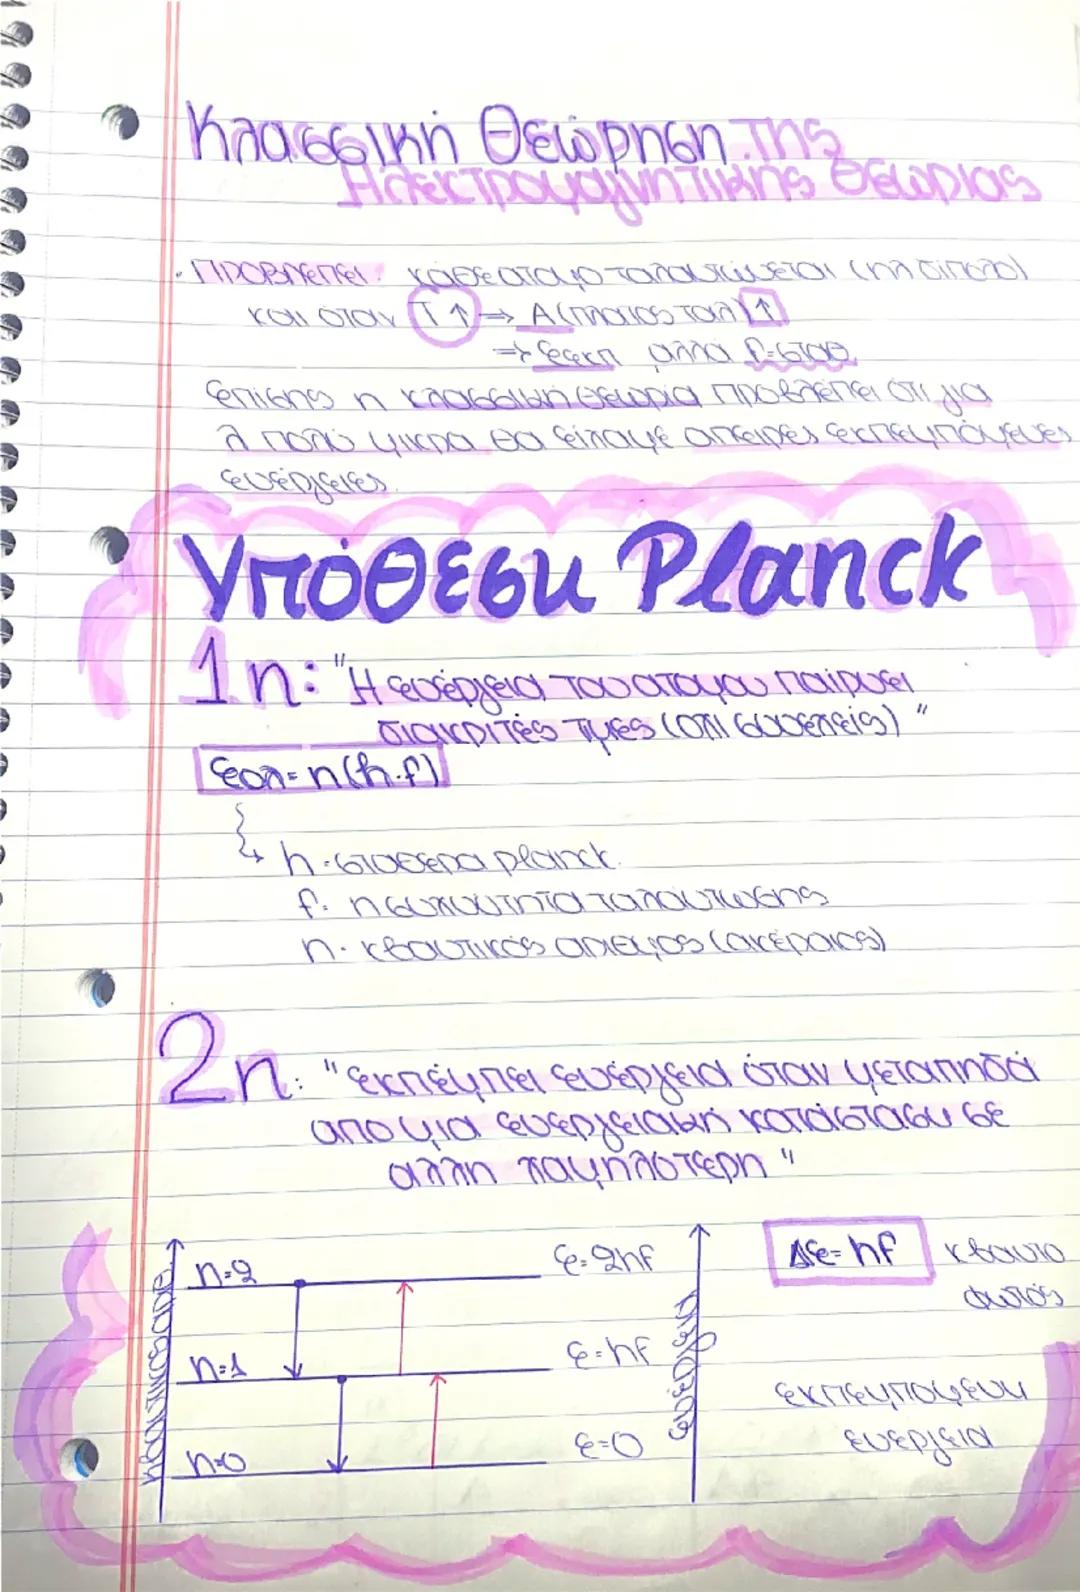 Κλασσική Θεώρηση της
Ηλεκτρομαγνητικής Θεωρίας
· ΠΡΟΒΛΕΠΕΙ: κάθε άτομο ταλαντώνεται (ηλ δίπολο)
και όταν T↑ ⇒ A(πλάτος ταλ) ↑
⇒ εεκπ αλλά f=σταθ.
επίσης η κλασσική θεωρία προβλέπει ότι για
λ πολύ μικρά θα είχαμε άπειρες εκπεμπόμενες
ενέργειες.
Υπόθεση Planck
1η: "Η ενέργεια του ατόμου παίρνει
διακριτές τιμές (όχι συνεχείς)"
εολ=n(h·f)
h: σταθερά planck.
f: η συχνότητα ταλάντωσης
n: κβαντικός αριθμός (ακέραιος)
2η: "εκπέμπει ενέργεια όταν μεταπηδά
από μια ενεργειακή κατάσταση σε
άλλη χαμηλότερη"
κβαντικός αριθ
n=2 ε=2hf
n=1 ε=hf
n=0 ε=0
ενέργεια
Δε=hf κβάντο
φωτός
εκπεμπόμενη
ενέργεια